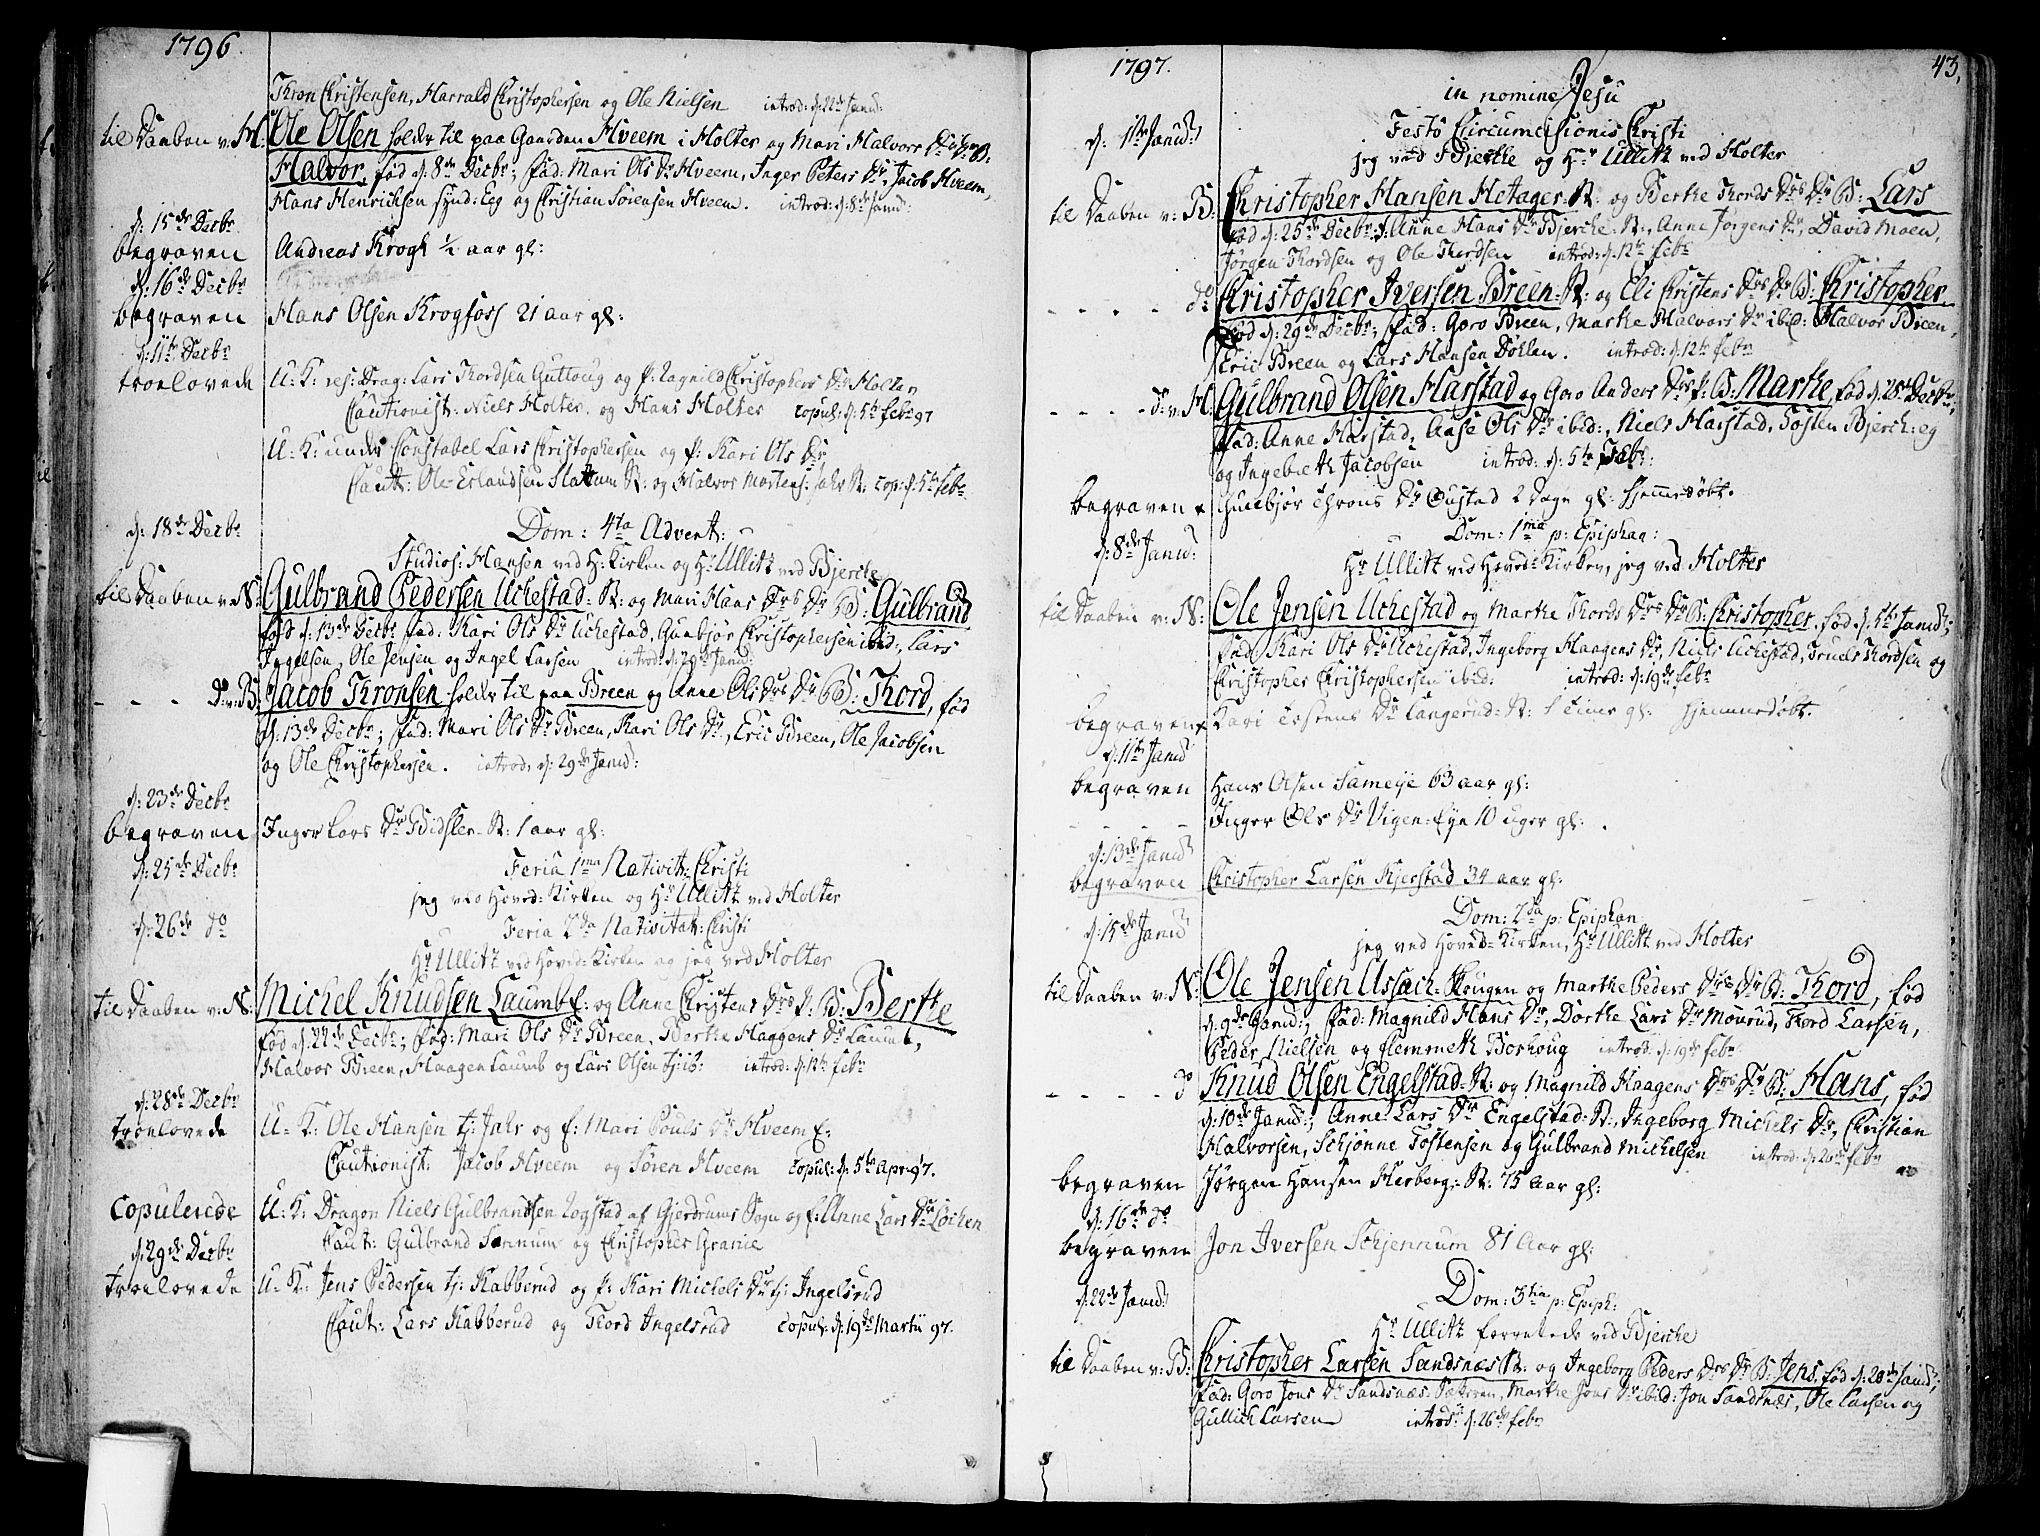 1796.
Thron Christensen, Harrald Christophersen og Ole Nielsen introd: d: 22de Janu:
til Daaben v: H: Ole Olsen holder til paa Gaarden Hveem i Holter og Mari Halvors Dr B:
Halvor, fød d: 8de Decbr; fad: Mari Ols Dr Hveem, Inger Peters Dr, Jacob Hveem,
Hans Henrichsen Eeg og Christian Sørensen Hveem. introd: d: 8de Janu:
d: 15de Decbr
begraven Andreas Krogh ½ aar gl:
d: 16de Decbr
begraven Hans Olsen Krogfoss 21 aar gl:
d: 17de Decbr
troelovede U: K: res: Drag: Lars Thordsen Guttoug og p: Ragnild Christophers Dr Holter
Cautionist: Niels Holter, og Hans Holter copul: d: 5te Febr 97
U: K: Constabel Lars Christophersen og p: Kari Ols Dr
Caut: Ole Erlandsen Slattum R: og Halvor Mortens: Jahr R: cop: d: 5te Febr
d: 18de Decbr Dom: 4ta Advent:
Studios: Hansen ved H: Kirken og Hr Ullitz ved Bjerche
til Daaben v: N: Gulbrand Pedersen Uchestad R: og Mari Hans Drs Dr B: Gulbrand
fød d: 13de Decbr fad: Kari Ols Dr Uchestad, Gunbjør Christophersen ibid:, Lars
Ingelsen, Ole Jensen og Ingel Larsen introd: d: 29de Janu:
- - - do v: B: Jacob Thronsen holder til paa Breen og Anne Ols Drs Dr B: Thord, fød
d: 13de Decbr; fad: Mari Ols Dr Breen, Kari Ols Dr, Eric Breen, Ole Jacobsen
og Ole Christophersen. introd: d: 29de Janu:
d: 23de Decbr
begraven Inger Lars Dr Bidsler R: 1 aar gl:
d: 25de Decbr Feria 1ma Nativit: Christi
jeg ved Hoved-Kirken og Hr Ullitz ved Holter
d: 26de do Feria 2da Nativitat: Christi
Hr Ullitz ved Hoved-Kirken og jeg ved Holter
til Daaben v: N: Michel Knudsen Laumb E: og Anne Christens Drs P: B: Berthe
fød d: 22de Decbr; fad: Mari Ols Dr Breen, Berthe Haagens Dr Laumb,
Halvor Breen, Haagen Laumb og Lars Olsen tj: ib: introd: d: 12te Febr
d: 28de Decbr
troelovede U: K: Ole Hansen tj: Jahr og E: Mari Pouls Dr Hveem E:
Cautionist: Jacob Hveem og Søren Hveem copul: d: 5te Apr: 97.
Copulerede U: K: Dragon Niels Gulbrandsen Logstad af Gjerdrums Sogn og E: Anne Lars Dr Løchen
Caut: Gulbrand Sannum og Christopher
d: 29de Decbr
troelovede U: K: Jens Pedersen tj: Kabberud og P: Kari Michels Dr tj: Ingelsrud
Caut: Lars Kabberud og Thord Ingelsrud copul: d: 19de Martii 97.
1797. 43.
in nomine Jesu
d: 1ste Janu: Festo Circumcisionis Christi
jeg ved Bjerche og Hr Ullitz ved Holter
til Daaben v: B: Christopher Hansen Hetager R: og Berthe Thords Drs Dr B: Lars
fød d: 25de Decbr, Anne Hans Dr Bjerche R:, Anne Jørgens Dr, David Moen,
Jørgen Thordsen og Ole Thordsen introd: d: 12te Febr
- - - - do Christopher Iversen Breen R: og Eli Christens Drs Dr B: Christopher
fød d: 29de Decbr; fad: Goro Breen, Marthe Halvors Dr ibid: Halvor Breen,
Eric Breen og Lars Hansen Døhlen. introd: d: 12te Febr
- - - - do v: H: Gulbrand Olsen Harstad og Goro Anders Drs P: B: Marthe, fød d: 28de Decbr;
fad: Anne Harstad, Aase Ols Dr ibid:, Niels Harstad, Tosten Bjerch: eg
og Ingebreth Jacobsen introd: d: 5te Febr:
begraven Gunbjør Throns Dr Oustad 2 Dage gl: hjemmedøbt.
d: 8de Janu: Dom: 1ma p: Epiphan:
Hr Ullitz ved Hoved-Kirken, jeg ved Holter
til Daaben v: N: Ole Jensen Uchestad og Marthe Thords Drs Dr B: Christopher, fød d: 5te Janu:;
fad: Kari Ols Dr Uchestad, Ingeborg Haagens Dr, Niels Uchestad, Truels Thordsen og
Christopher Christophersen ibid: introd: d: 19de Febr
begraven Kari Tostens Dr Langerud R: 1 Time gl: hjemmedøbt.
d: 11te Janu:
begraven Hans Olsen Sameije 63 aar gl:
- - - Inger Ols Dr Vigen: Eje 10 uger gl:.
d: 13de Janu:
begraven Christopher Larsen Kjerstad 34 aar gl:
d: 15de Janu: Dom: 2da p: Epiphan:
jeg ved Hoved-Kirken, Hr Ullitz ved Holter
til Daaben v: N: Ole Jensen Ussach-Hougen og Marthe Peders Drs Dr B: Thord, fød
d: 9de Janu:; fad: Magnild Hans Dr, Dorthe Lars Dr Mourud, Thord Larsen,
Peder Nielsen og Flemmeth Borhoug introd: d: 19de Febr:
- - - - do Knud Olsen Engelstad R: og Magnild Haagens Drs Dr B: Hans, fød
d: 10de Janu:; Anne Lars Dr Engelstad R:, Ingeborg Michels Dr, Christian
Halvorsen, Schjønne Tostensen og Gulbrand Michelsen introd: d: 26de Febr
begraven Jørgen Hansen Herberg: R: 75 Aar gl:
d: 16de do
begraven Jon Iversen Schjennum 81 Aar gl:
d: 22de Janu: Dom: 3tia p: Epiph:
Hr Ullitz forrettede ved Bjerche
til Daaben v: B: Christopher Larsen Sandsnæs R: og Ingeborg Peders Drs Dr B: Jens, fød d: 20de Janu:;
fad: Goro Jons Dr Sandsnæs: Sætteren, Marthe Jons Dr ibid: Jon Sandsnæs, Ole Larsen og
Gullich Larsen introd: d: 26de Febr